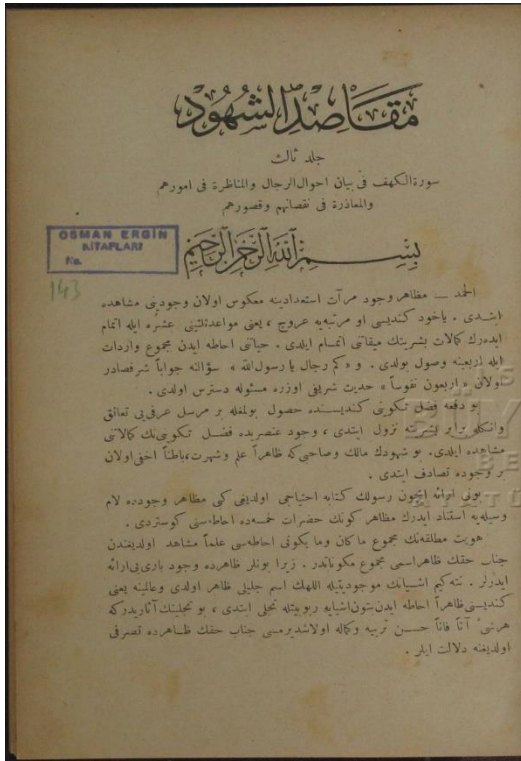 مقاصد الشهود
جلد ثالث
سورة الكهف فى بيان احوال الرجال والمناظرة فى امورهم
والمعاذرة فى نقصانهم وقصورهم
OSMAN ERGİN
KİTAPLARI
No.
بسم الله الرحمن الرحيم
143
الحمد ــ مظاهر وجود مرآت استعدادينه معكوس اولان وجودينى مشاهده
ايتدى . ياخود كنديسى او مرتبه‌يه عروج ، يعنى مواعد ثلثينى عشره ايله اتمام
ايده‌رك كمالات بشريتك ميقاتنى اتمام ايلدى . حياتنى احاطه ايدن مجموع واردات
ايله اربعينه وصول بولدى . و « كم رجال يا رسول الله » سؤالنه جواباً شرفصادر
اولان « اربعون نفوساً » حديث شريفى اوزره مسئوله دسترس اولدى .
بو دفعه فضل تكونى كنديسنده حصول بولمغله بر مرسل عرفى‌يى تعانق
وانكله برابر بشريته نزول ايتدى ، وجود عنصريده فضل تكوينى‌نك كمالاتنى
مشاهده ايلدى. بو شهودك مالك وصاحبى كه ظاهراً علم وشهرت، باطناً اخفى اولان
بر وجوده تصادف ايتدى .
بونى ارائه ايچون رسولك كتابه احتياجى اولديغى كبى مظاهر وجودده لام
وسيله‌يه استناد ايدرك مظاهر كونك حضرات خمسه‌ده احاطه‌سنى كوستردى .
هويت مطلقه‌نك مجموع ماكان وما يكونى احاطه‌سى علماً مشاهد اولديغندن
جناب حقك ظاهر اسمى مجموع مكوناتدر . زيرا بونلر ظاهرده وجود بارى‌يى ارائه
ايدرلر . نته‌كيم اشيانك موجوديتيله اللهك اسم جليلى ظاهر اولدى وعالمينه يعنى
كنديسنى ظاهراً احاطه ايدن بتون اشيايه ربوبيتله تجلى ايتدى ، بو تجلينك آثاريدركه
هر شئ آناً فاناً حسن تربيه وكماله اولاشديرمسى جناب حقك ظاهرده تصرفى
اولديغنه دلالت ايلر .